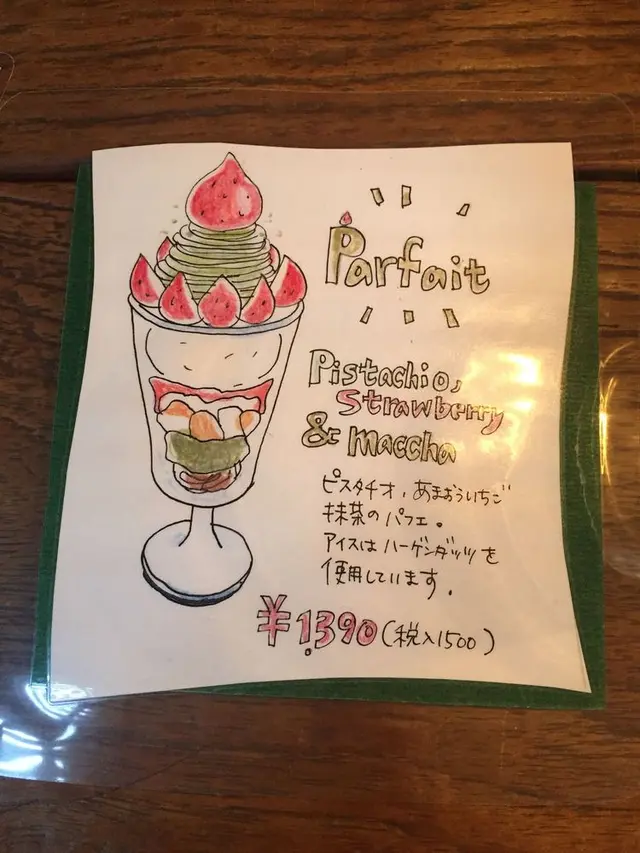 Parfait
Pistachio,
Strawberry
& maccha
ピスタチオ、あまおういちご
抹茶のパフェ。
アイスはハーゲンダッツを
使用しています。
¥1.390(税入1500)